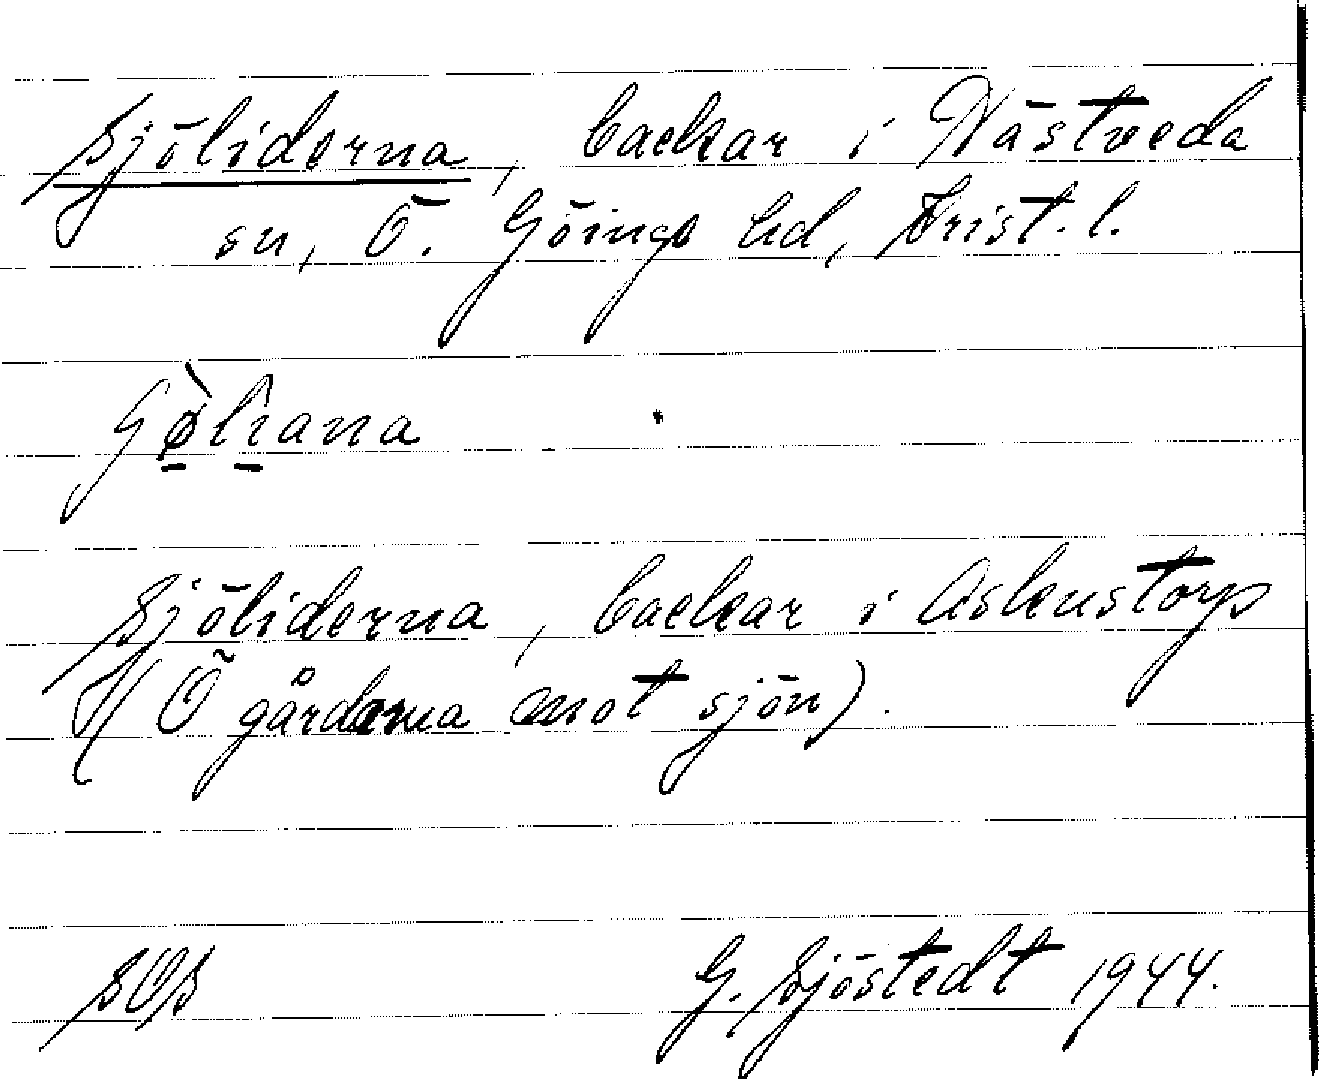 Sjöliderna, backar i Västveda
sn, Ö. Göings hd, Krist. l.
Sjöliderna, backar i Askenstorp
(Ö gårdarna mot sjön).
SOS G. Sjöstedt 1944.